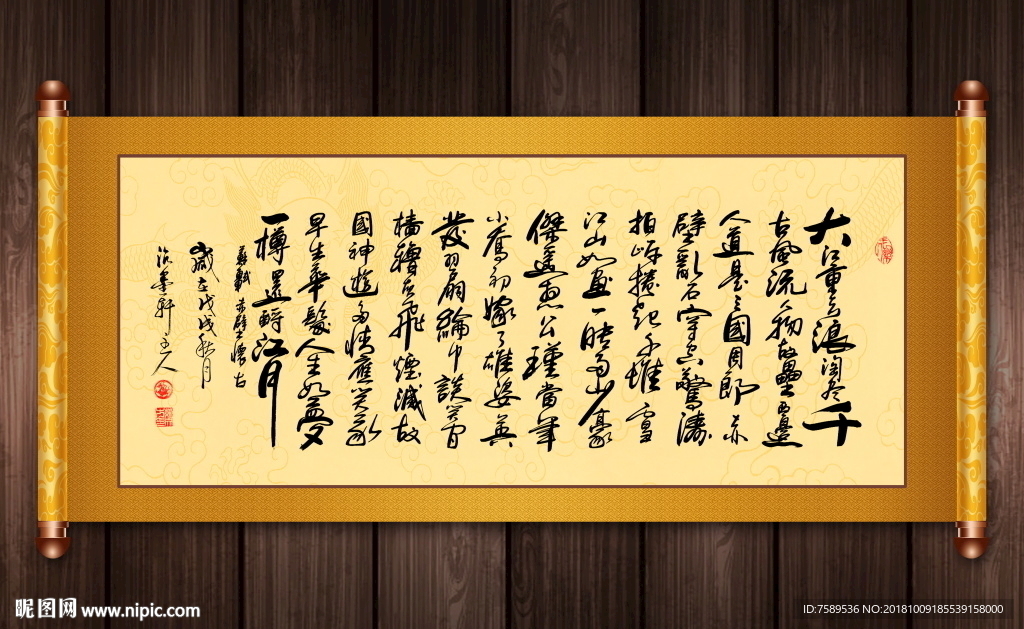 大江東去浪淘盡千
古風流人物故壘西邊
人道是三國周郎赤
壁亂石穿空驚濤
拍岸捲起千堆雪
江山如畫一時多少豪
傑遙想公瑾當年
小喬初嫁了雄姿英
發羽扇綸巾談笑間
檣櫓灰飛煙滅故
國神遊多情應笑我
早生華髮人生如夢
一樽還酹江月
蘇軾 赤壁懷古
歲在戊戌秋月
墨軒主人
昵图网 www.nipic.com
ID:7589536 NO:20181009185539158000